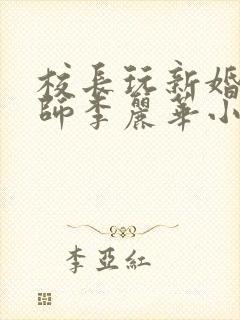 校長玩新婚
師李麗華小
李亞紅